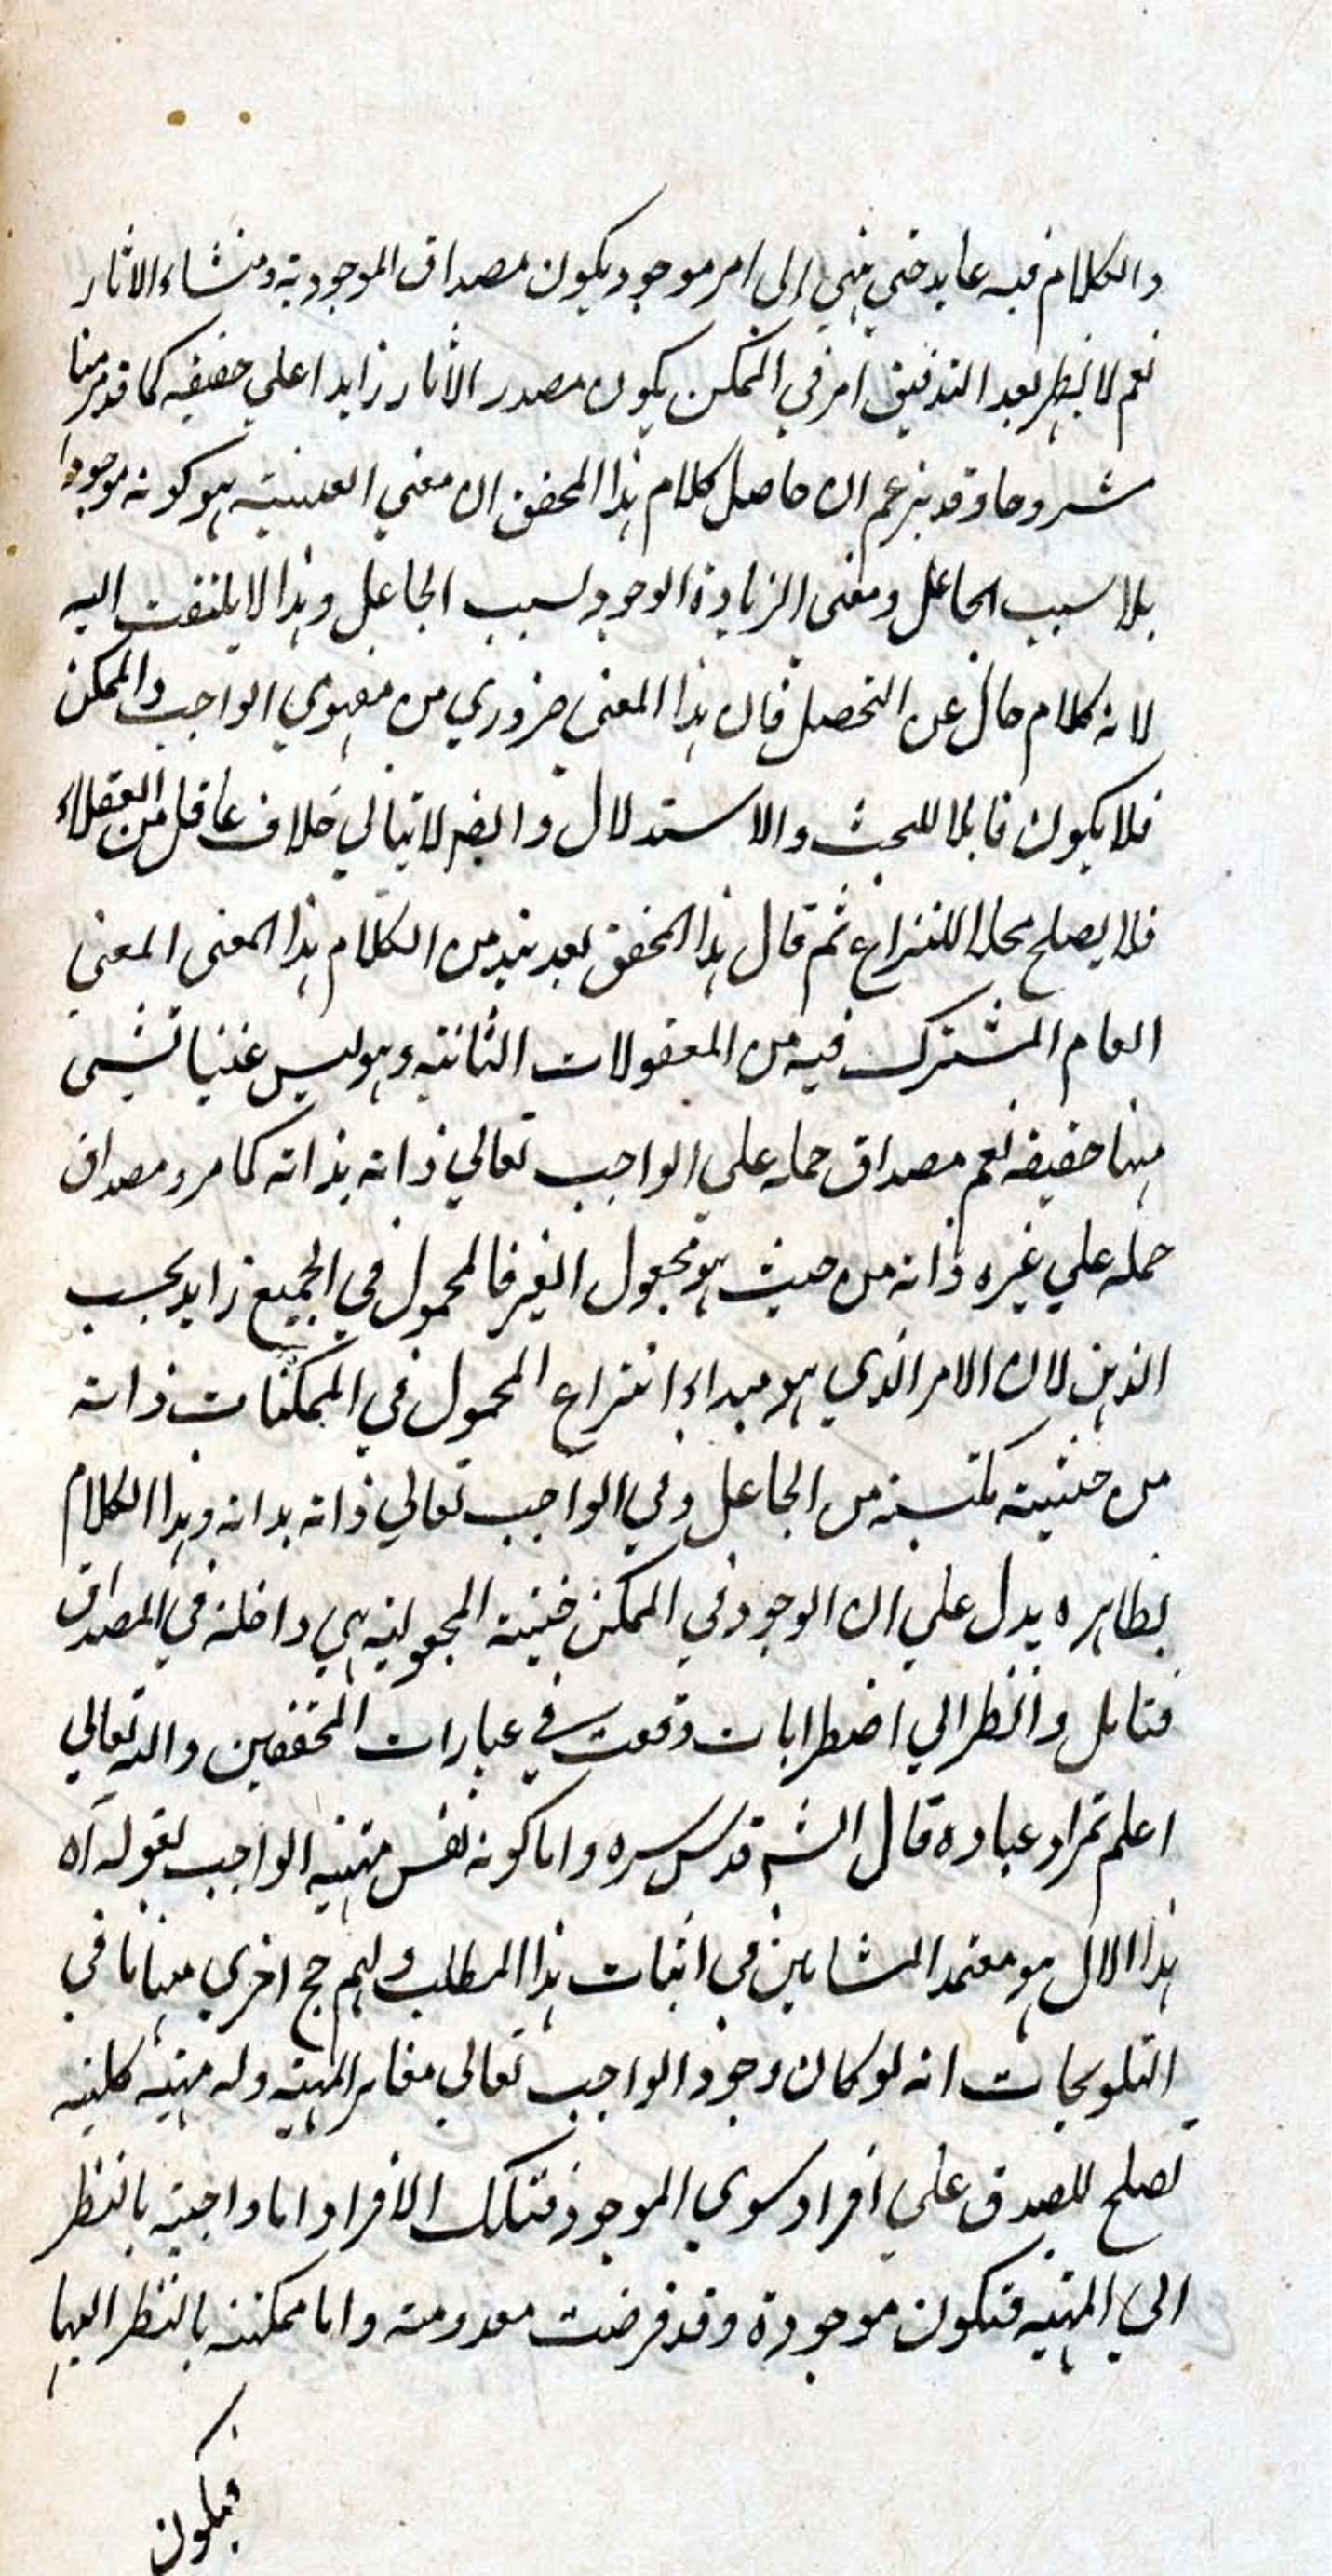 والكلام فيه عايد حتى ينتهي إلى امر موجود يكون مصداق الموجودية ومنشاء الاثار
نعم لا يظهر بعد التدقيق امر في الممكن يكون مصدر الاثار زايدا علي حقيقه كما قد مر منا
مشروحا وقد يزعم ان حاصل كلام هذا المحقق ان معني العينية هو كونه موجودا
بلا سبب الجاعل ومعنى الزيادة الوجود لسبب الجاعل وهذا لا يلتفت اليه
لانه كلام خال عن التحصيل فان هذا المعنى ضروري من مفهومي الواجب والممكن
فلا يكون قابلا للبحث والاستدلال وايضا لا يتاتي خلاف عاقل من العقلاء
فلا يصلح محلا للنزاع ثم قال هذا المحقق بعد نبذ من الكلام هذا المعنى المعني
العام المشترك فيه من المعقولات الثانية وهو ليس عينا لشيي
منها حقيقه نعم مصداق حمله علي الواجب تعالي ذاته بذاته كما مر ومصداق
حمله علي غيره ذاته من حيث هو مجعول الغير فالمحمول في الجميع زايد بحسب
الذهن لان الامر الذي هو مبداء انتزاع المحمول في الممكنات ذاته
من حيثية مكتسبة من الجاعل وفي الواجب تعالي ذاته بذاته وهذا الكلام
بظاهره يدل علي ان الوجود في الممكن حيثية المجعولية هي داخلة في المصداق
فتامل وانظر الي اضطرابات وقعت في عبارات المحققين والله تعالي
اعلم بمراد عباده قال الش قدس سره واما كونه نفس مهيه الواجب لقوله اه
هذا الاول هو معتمد المشايين في اثبات هذا المطلب ولهم حجج اخري منها ما في
التلويحات انه لو كان وجود الواجب تعالي مغاير المهية وله مهية كلية
تصلح للصدق علي افراد سوي الموجود فتلك الافراد اما واجبة بالنظر
الي المهية فتكون موجودة وقد فرضت معدومة واما ممكنة بالنظر اليها
فيكون